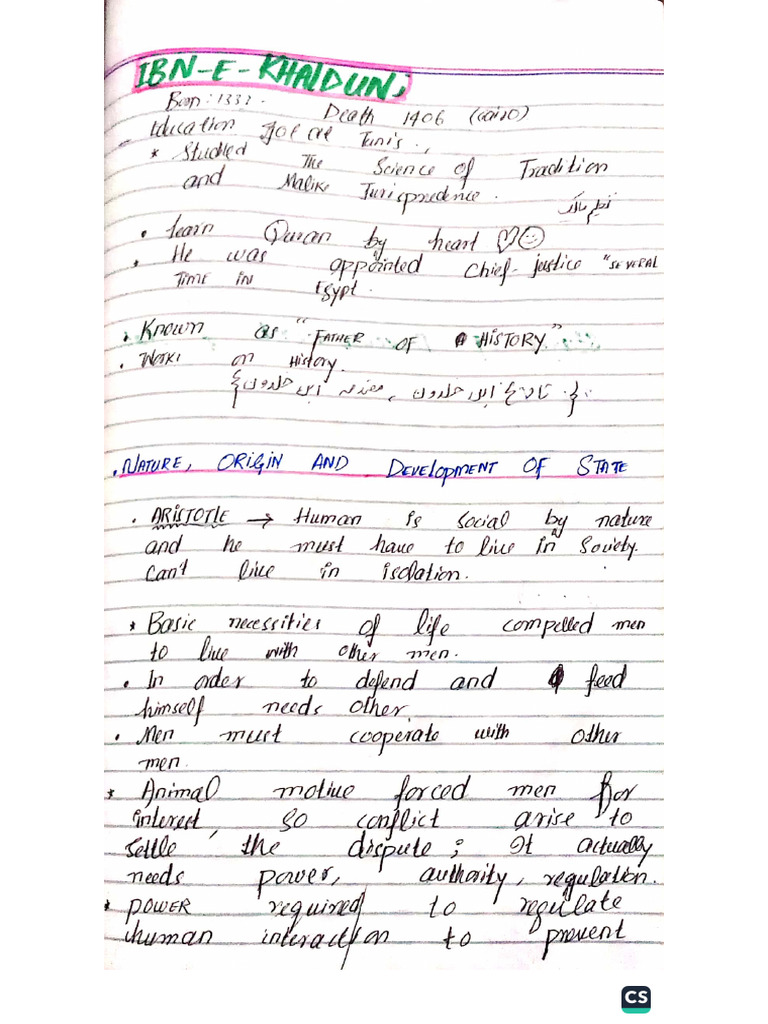 IBN-E-KHALDUN;
Born: 1332. Death 1406 (Cairo)
Education Tunis.,
* Studied The Science of Tradition
and Malike Jurisprudence.
• learn Quran by heart
• He was appointed Chief-justice "SEVERAL
TIME IN Egypt.
• KNOWN as "FATHER OF HISTORY"
• WORK: on History.
{ تاریخ ابن خلدون , مقدمہ ابن خلدون }
• NATURE, ORIGIN AND DEVELOPMENT OF STATE
• ARISTOTLE → Human is social by nature
and he must have to live in Society.
Can't live in isolation.
* Basic necessities of life compelled men
to live with other men.
• In order to defend and feed
himself needs other.
• Men must cooperate with other
men.
* Animal motive forced men for
interest, so conflict arise to
settle the dispute; It actually
needs power, authority, regulation.
* POWER required to regulate
human interaction to prevent
CS